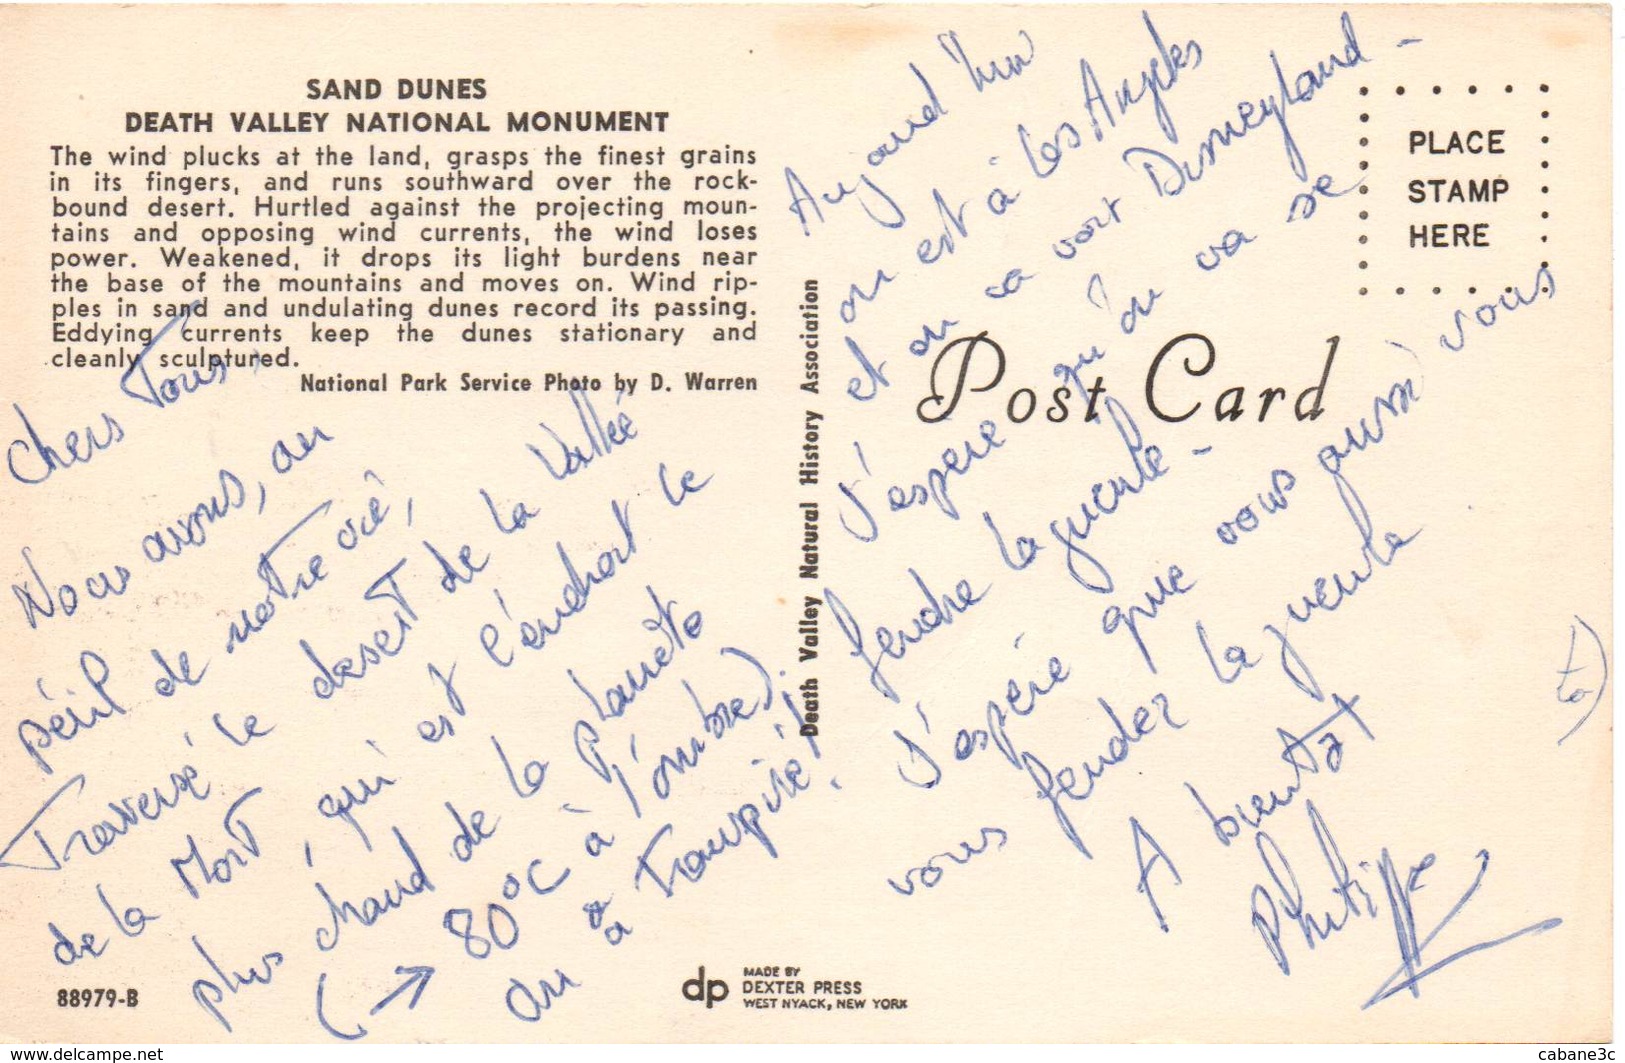 SAND DUNES
DEATH VALLEY NATIONAL MONUMENT
The wind plucks at the land, grasps the finest grains
in its fingers, and runs southward over the rock-
bound desert. Hurtled against the projecting moun-
tains and opposing wind currents, the wind loses
power. Weakened, it drops its light burdens near
the base of the mountains and moves on. Wind rip-
ples in sand and undulating dunes record its passing.
Eddying currents keep the dunes stationary and
cleanly sculptured.
National Park Service Photo by D. Warren
Chers Tous,
Nous avons, au
péril de notre vie,
Traversé le desert de la Vallée
de la Mort, qui est l'endroit le
plus chaud de la Planète
(→ 80°C à l'ombre).
On a Transpiré!
88979-B
Death Valley Natural History Association
dp
MADE BY
DEXTER PRESS
WEST NYACK, NEW YORK
Post Card
PLACE
STAMP
HERE
Aujourd'hui
on est à Los Angeles
et on va voir Disneyland -
J'espère qu'on va se
fendre la gueule -
J'espère que vous aussi vous
vous fendez la gueule.
A bientôt
Philippe
www.delcampe.net
cabane3c